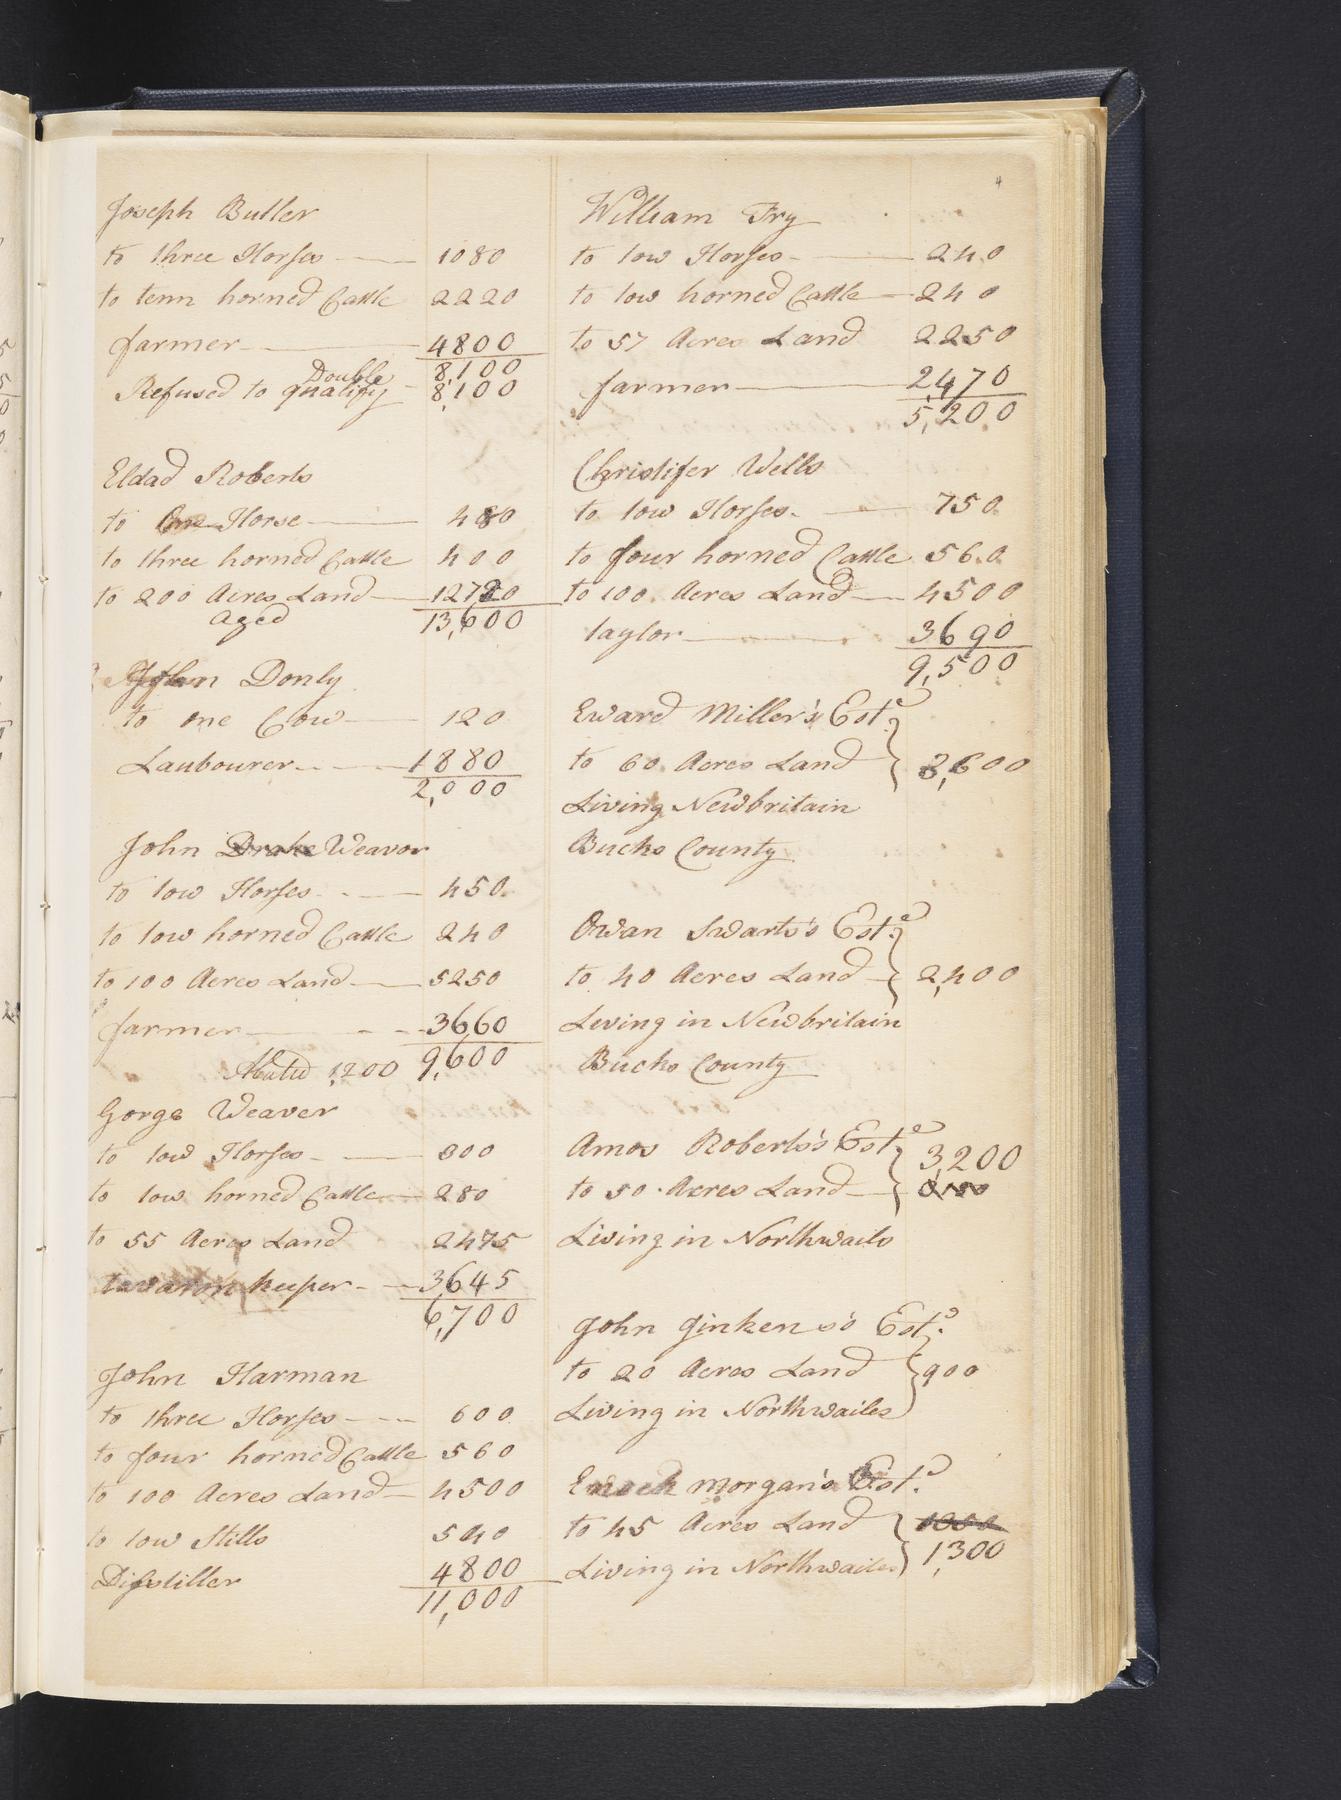 4
Joseph Butler
to three Horses 1080
to tenn horned Cattle 2220
farmer 4800
8,100
Double
Refused to qualify 8,100
Eldad Roberts
to One Horse 480
to three horned Cattle 400
to 200 Acres Land 12720
Aged 13,600
Donly
to one Cow 120
Laubourer 1880
2,000
John Drake Weavor
to tow Horses 450
to tow horned Cattle 240
to 100 Acres Land 5250
farmer 3660
Abated 1,200 9,600
Gorge Weaver
to tow Horses 300
to tow horned Cattle 280
to 55 Acres Land 2475
tavaron keeper 3645
6,700
John Harman
to three Horses 600
to four horned Cattle 560
to 100 Acres Land 4500
to tow Stills 540
Disstiller 4800
11,000
William Fry
to tow Horses 240
to tow horned Cattle 240
to 57 Acres Land 2250
farmer 2470
5,200
Christifer Wells
to tow Horses 750
to four horned Cattle 560
to 100 Acres Land 4500
taylor 3690
9,500
Eward Miller's Este
to 60 Acres Land 3,600
Living Newbritain
Bucks County
Owan Swarts's Este
to 40 Acres Land 2,400
Living in Newbritain
Bucks County
Amos Roberts's Este 3,200
to 50 Acres Land
Living in Northwails
John Jinkens's Este
to 20 Acres Land 900
Living in Northwailes
Enoch Morgan's Este
to 45 Acres Land
1,300
Living in Northwailes